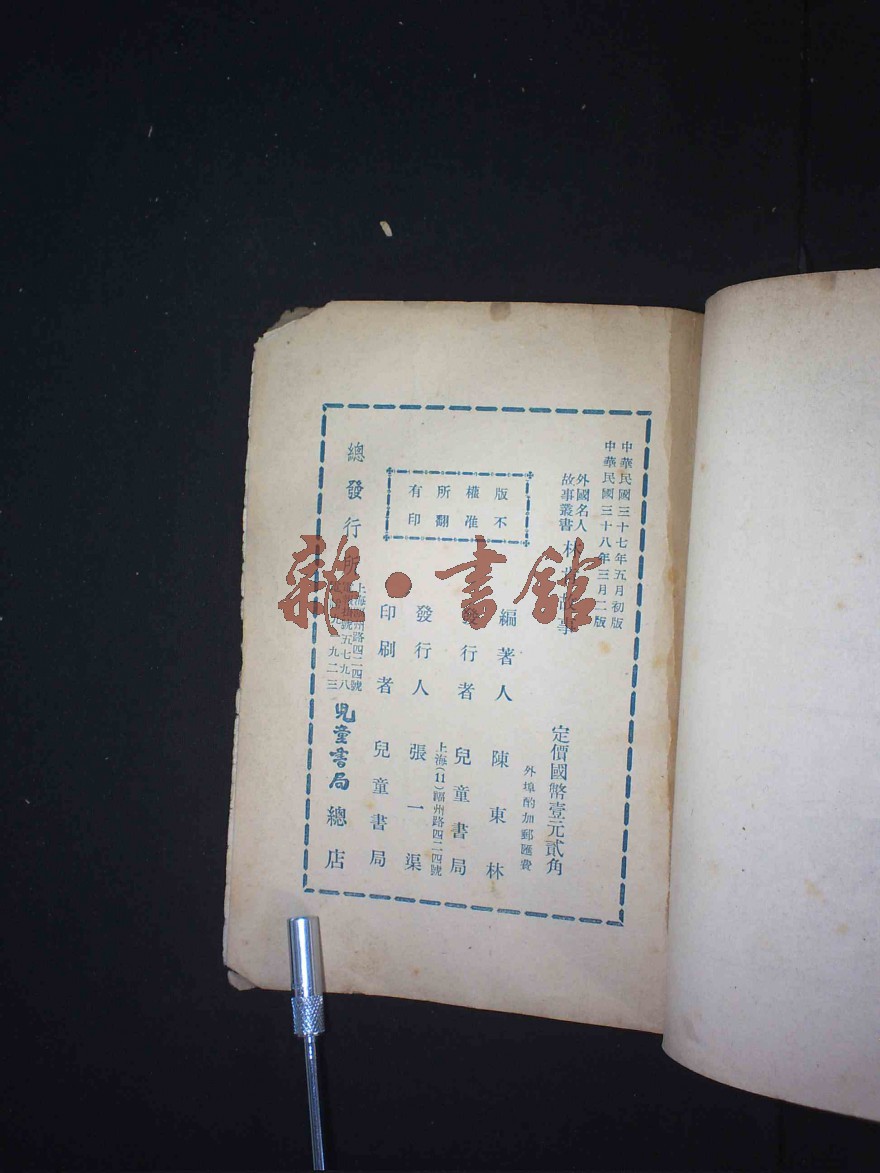 中華民國三十七年五月初版
中華民國三十八年三月二版
外國名人
故事叢書
林肯故事
定價國幣壹元貳角
外埠酌加郵匯費
版權所有
不准翻印
編著人 陳東林
發行者 兒童書局
上海(11)福州路四二四號
發行人 張一渠
印刷者 兒童書局
總發行所
上海福州路四二四號
兒童書局總店
雜·書館